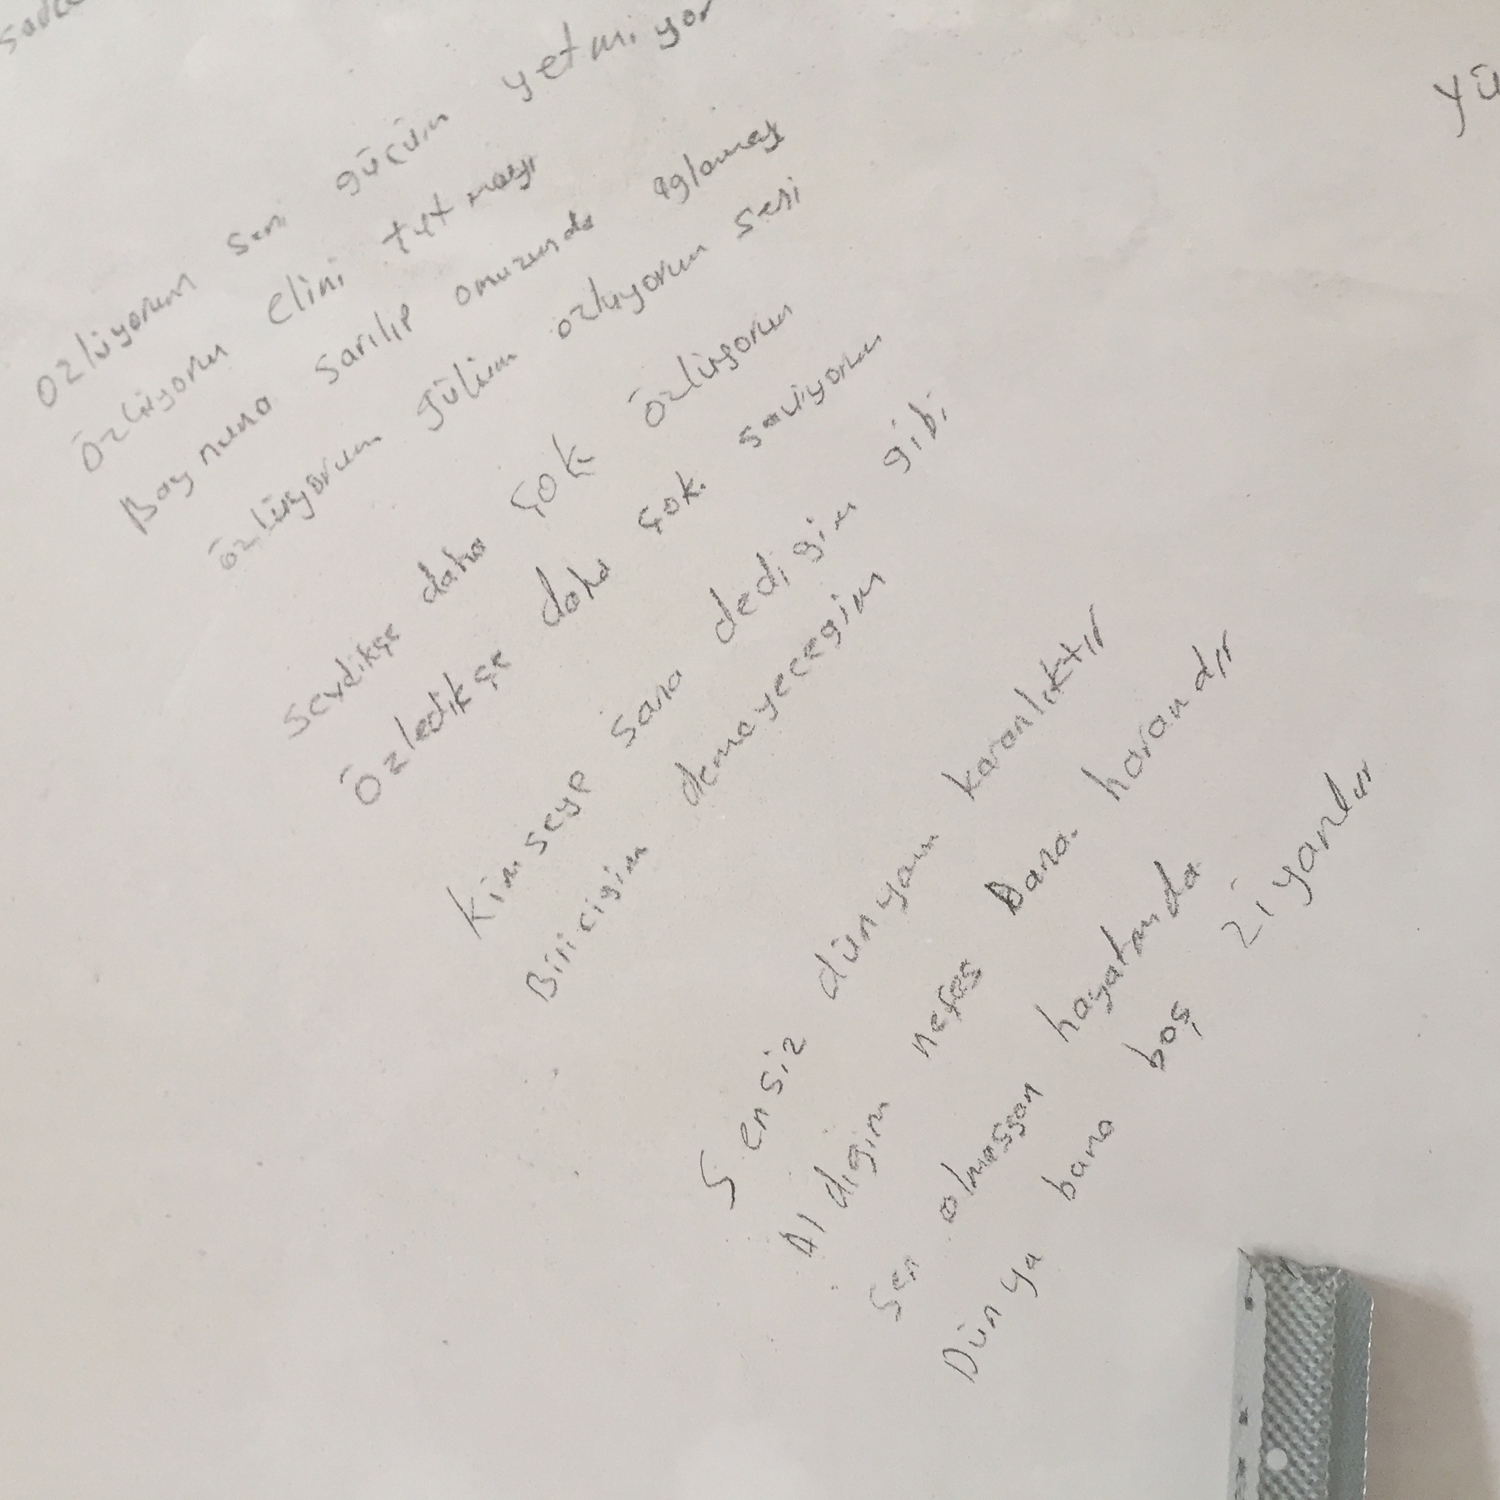 özlüyorum seni gücüm yetmiyor
Özlüyorum elini tutmayı
Boynuna sarılıp omuzunda aglamayı
özlüyorum gülüm özluyorum seni
Sevdikçe daha çok özlüyorum
Özledikçe daha çok seviyorum
Kimseye sana dedigim gibi
Biricigim demeyecegim
Sensiz dünyam karanlıktır
Aldigim nefes Bana haramdır
Sen olmassan hayatımda
Dünya bana boş ziyandır